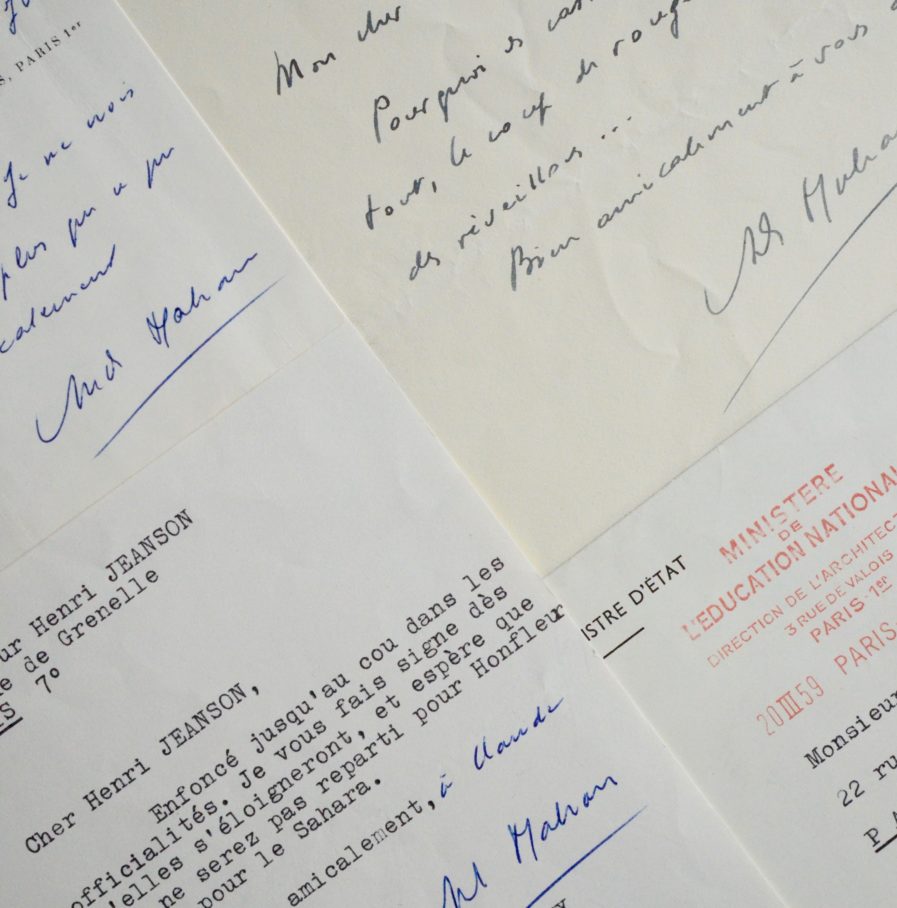 S, PARIS 1er
Je ne vois
plus
calement
Mon cher
Pourquoi
tout, le coup de rouge
des réveillons ...
Bien amicalement à vous
ur Henri JEANSON
e de Grenelle
S 7°
Cher Henri JEANSON,
Enfoncé jusqu'au cou dans les
officialités. Je vous fais signe dès
'elles s'éloigneront, et espère que
ne serez pas reparti pour Honfleur
pour le Sahara.
amicalement, à Claude
ISTRE D'ÉTAT
MINISTERE
DE
L'EDUCATION NATIONAL
DIRECTION DE L'ARCHITECT
3 RUE DE VALOIS
PARIS-1er
20 III 59 PARIS
Monsieur
22 ru
P A